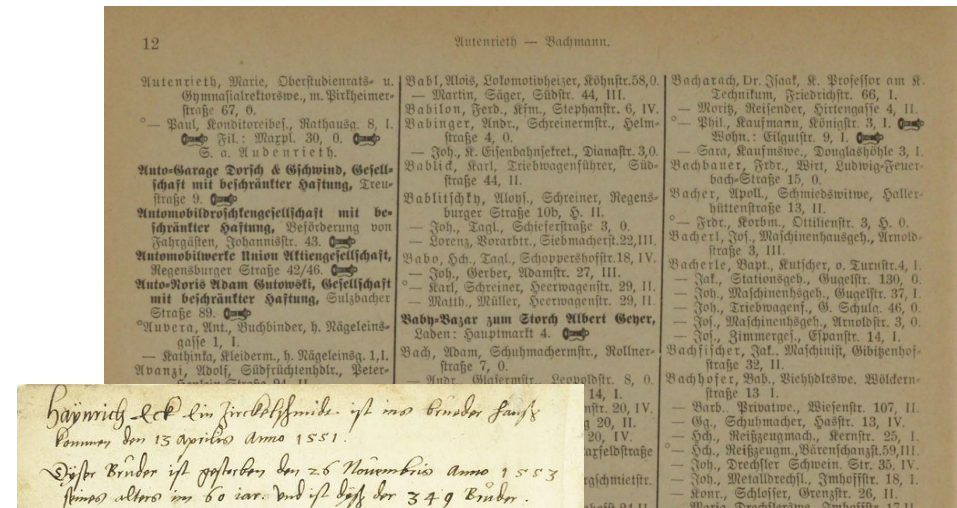 12
Autenrieth — Bachmann.
Autenrieth, Marie, Oberstudienrats- u.
Gymnasialrektorswe., m. Pirkheimer-
straße 67, 0.
°— Paul, Konditoreibes., Rathausg. 8, I.
Fil.: Maxpl. 30, 0.
S. a. Audenrieth.
Auto-Garage Dorsch & Gschwind, Gesell-
schaft mit beschränkter Haftung, Treu-
straße 9.
Automobildroschkengesellschaft mit be-
schränkter Haftung, Beförderung von
Fahrgästen, Johannisstr. 43.
Automobilwerke Union Aktiengesellschaft,
Regensburger Straße 42/46.
Auto-Noris Adam Gutowski, Gesellschaft
mit beschränkter Haftung, Sulzbacher
Straße 89.
°Auvera, Ant., Buchbinder, h. Nägeleins-
gasse 1, I.
— Kathinka, Kleiderm., h. Nägeleinsg. 1, I.
Avanzi, Adolf, Südfrüchtenhdlr., Peter-
Babl, Alois, Lokomotivheizer, Köhnstr. 58, 0.
— Martin, Säger, Südstr. 44, III.
Babilon, Ferd., Kfm., Stephanstr. 6, IV.
Babinger, Andr., Schreinermstr., Helm-
straße 4, 0.
— Joh., K. Eisenbahnsekret., Dianastr. 3, 0.
Bablick, Karl, Triebwagenführer, Süd-
straße 44, II.
Bablitschky, Aloys., Schreiner, Regens-
burger Straße 10b, H. II.
— Joh., Tagl., Schieferstraße 3, 0.
— Lorenz, Vorarbtr., Siebmacherst. 22, III.
Babo, Hch., Tagl., Schoppershofstr. 18, IV.
— Joh., Gerber, Adamstr. 27, III.
°— Karl, Schreiner, Heerwagenstr. 29, II.
— Matth., Müller, Heerwagenstr. 29, II.
Baby-Bazar zum Storch Albert Geyer,
Laden: Hauptmarkt 4.
Bach, Adam, Schuhmachermstr., Rollner-
straße 7, 0.
— Andr., Glasermstr., Leopoldstr. 8, 0.
14, I.
nstr. 20, IV.
g 20, II.
20, IV.
arfeldstraße
rgschmietstr.
Bacharach, Dr. Isaak, K. Professor am K.
Technikum, Friedrichstr. 66, I.
— Moritz, Reisender, Hirtengasse 4, II.
°— Phil., Kaufmann, Königstr. 3, I.
Wohn.: Eilgutstr. 9, I.
— Sara, Kaufmswe., Douglashöhle 3, I.
Bachbauer, Frdr., Wirt, Ludwig-Feuer-
bach-Straße 15, 0.
Bacher, Apoll., Schmiedswitwe, Haller-
hüttenstraße 13, II.
°— Frdr., Korbm., Ottilienstr. 3, H. 0.
Bacherl, Jos., Maschinenhausgeh., Arnold-
straße 3, III.
Bacherle, Bapt., Kutscher, o. Turnstr. 4, I.
— Jak., Stationsgeh., Gugelstr. 130, 0.
— Joh., Maschinenhsgeh., Gugelstr. 37, I.
— Joh., Triebwagenf., G. Schula. 46, 0.
— Jos., Maschinenhsgeh., Arnoldstr. 3, 0.
— Jos., Zimmerges., Espanstr. 14, I.
Bachfischer, Jak., Maschinist, Gibitzenhof-
straße 32, II.
Bachhofer, Bab., Viehhdlrswe., Wölckern-
straße 13 I.
— Barb., Privatwe., Wiesenstr. 107, II.
— Gg., Schuhmacher, Hasstr. 13, IV.
— Hch., Reißzeugmach., Kernstr. 25, I.
°— Hch., Reißzeugm., Bärenschanzst. 59, III.
— Joh., Drechsler Schwein. Str. 35, IV.
— Joh., Metalldrechsl., Imhoffstr. 18, I.
— Konr., Schlosser, Grenzstr. 26, II.
Haÿnrich Eck Ein Zirckelschmidt ist ins brueder hauß
kommen den 13 aprilis Anno 1551.
Dÿser Brüder ist gestorben den 26 Nouembris Anno 1553
seines alters im 60 iar. Vnd ist dyß der 349 Brüder.